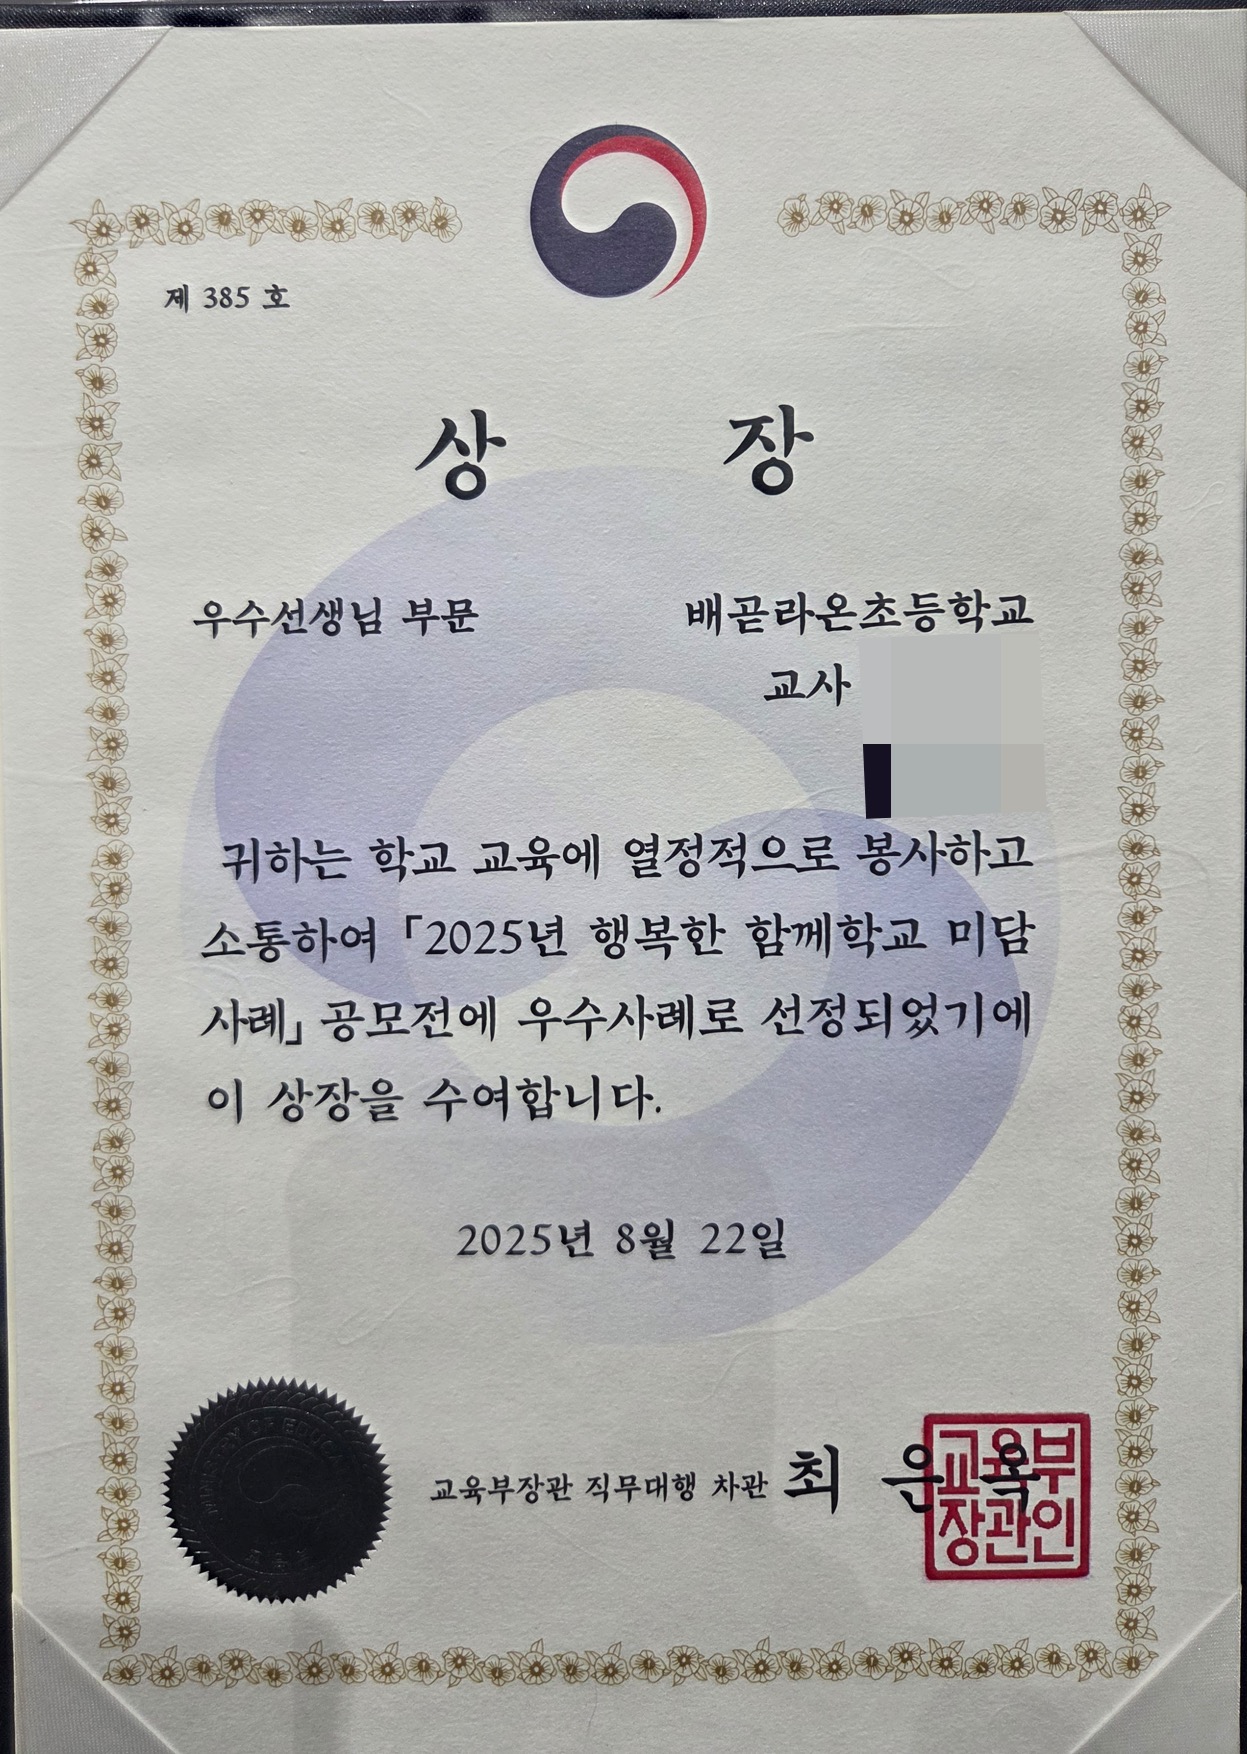 제 385 호
상 장
우수선생님 부문
배곧라온초등학교
교사
귀하는 학교 교육에 열정적으로 봉사하고
소통하여 「2025년 행복한 함께학교 미담
사례」 공모전에 우수사례로 선정되었기에
이 상장을 수여합니다.
2025년 8월 22일
MINISTRY OF EDUCATION
교육부장관 직무대행 차관 최 은 옥
교육부
장관인